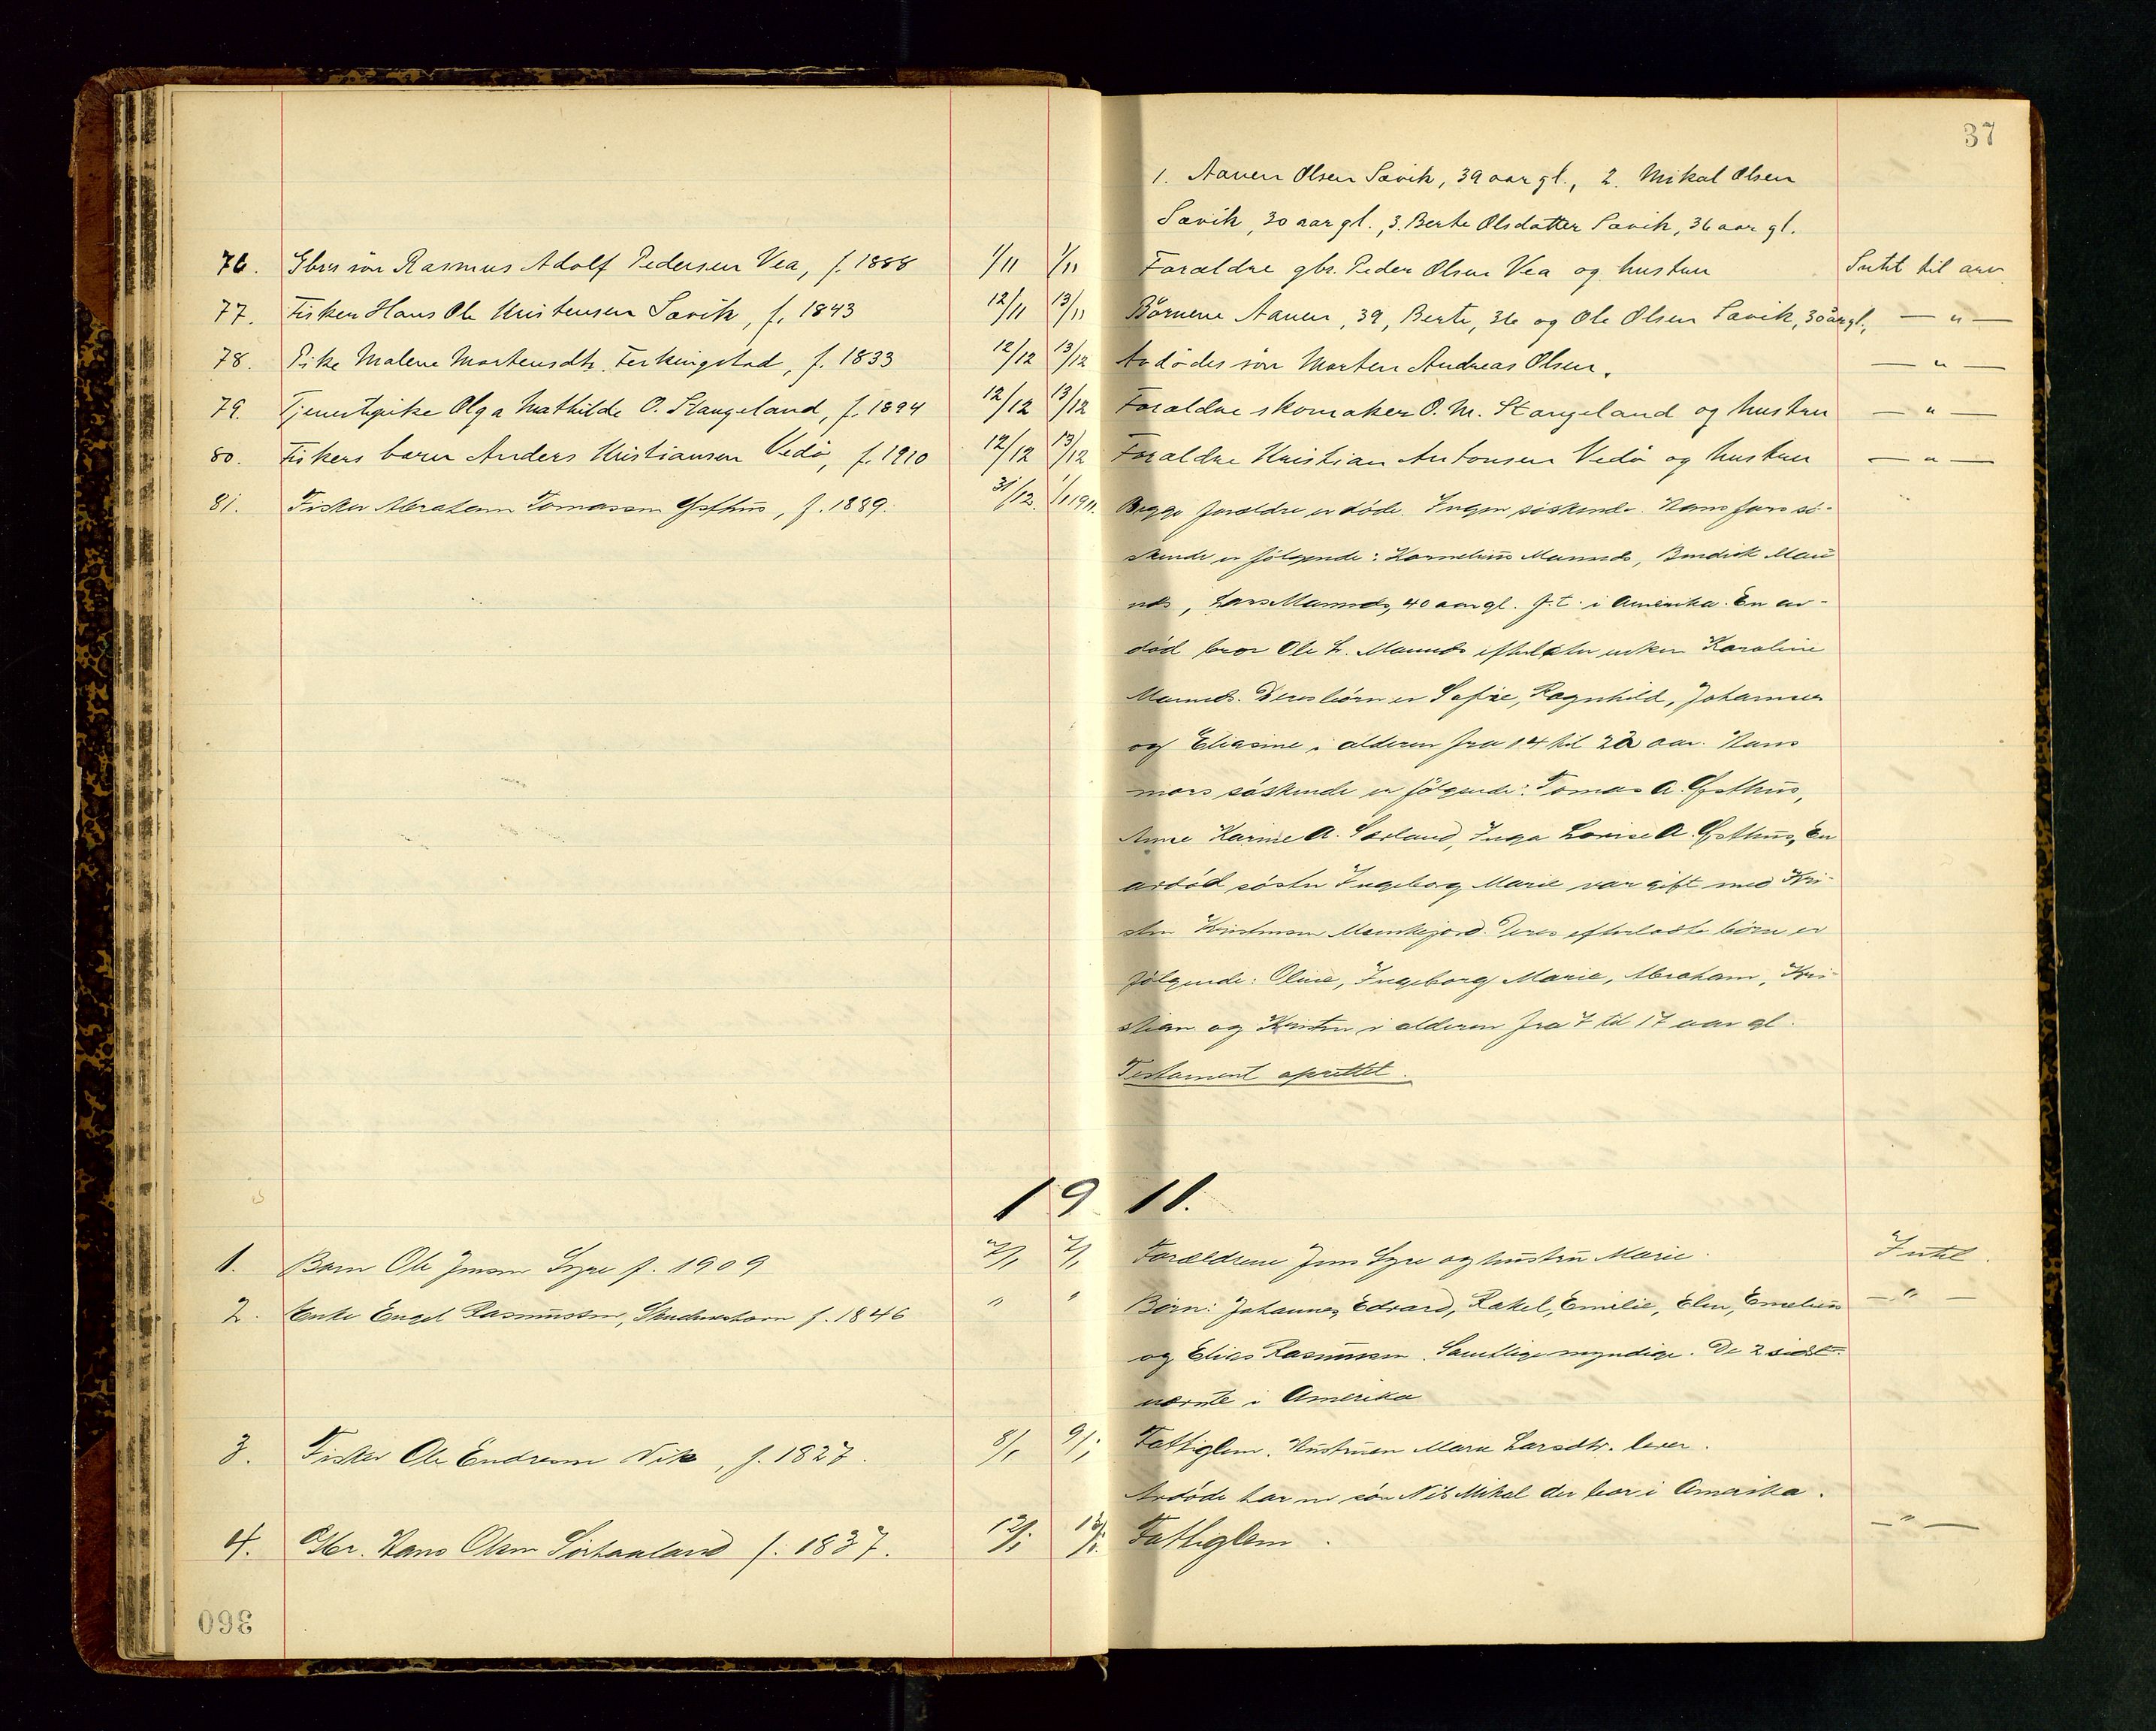 37
1. Aanen Olsen Sævik, 39 aar gl., 2. Mikal Olsen
Sævik, 30 aar gl., 3. Berte Olsdatter Sævik, 36 aar gl.
76. Gbrs søn Rasmus Adolf Pedersen Vea, f. 1888 1/11 1/11 Forældre gbr. Peder Olsen Vea og hustru Intet til arv
77. Fisker Hans Ole Kristensen Sævik, f. 1843 12/11 13/11 Börnene Aanen, 39, Berte, 36 og Ole Olsen Sævik, 30 år gl., — " —
78. Pike Malene Mortensdtr. Ferkingstad, f. 1833 12/12 13/12 Avdødes sön Morten Andreas Olsen. — " —
79. Tjenestepike Olga Mathilde O. Stangeland, f. 1894 12/12 13/12 Forældre skomaker O. M. Stangeland og hustru — " —
80. Fiskers barn Anders Kristiansen Vedö, f. 1910 12/12 13/12 Forældre Kristian Antonsen Vedö og hustru — " —
81. Fisker Abraham Tomassen Østhus, f. 1889. 31/12. 1/1 1911. Begge forældre er døde. Ingen søskende. Hans fars sø-
skende er følgende: Kornelius Munds, Bendik
, Lars 40 aar gl. f. t. i Amerika. En av-
död bror Ole L. efterlater enken Karoline
Deres börn er Sofie, Ragnhild, Johannes
og Eliasine i alderen fra 14 til 22 aar. Hans
mors söskende er fölgende: Tomas A. Østhus,
Anne Karine A. Sørland, Inga Lovise A. Østhus, En
avdöd söster Ingeborg Marie var gift med Kri-
sten Kristensen Munkejord. Deres efterladte börn er
fölgende: Oline, Ingeborg Marie, Abraham, Kri-
stian og Kristen i alderen fra 7 til 17 aar gl.
Testament oprettet.
1911.
1. Barn Ole Jensen Syre f. 1909 7/1 7/1 Forældrene Jens Syre og hustru Marie. Intet.
2. Enke Engel Rasmussen, Skudeneshavn f. 1846 " " Børn: Johannes, Edvard, Rakel, Emilie, Elen, Emelius — " —
og Elias Rasmussen. Samtlige myndige. De 2 sidst-
nævnte i Amerika
3. Fisker Ole Endresen Vik, f. 1827. 8/1 9/1 Fattiglem. Hustruen Mare Larsdtr. lever.
Avdöde har en sön Nils Mikal der bor i Amerika.
4. Gbr. Hans Olsen Sörhaaland f. 1837. 12/1 13/1. Fattiglem. — " —
360